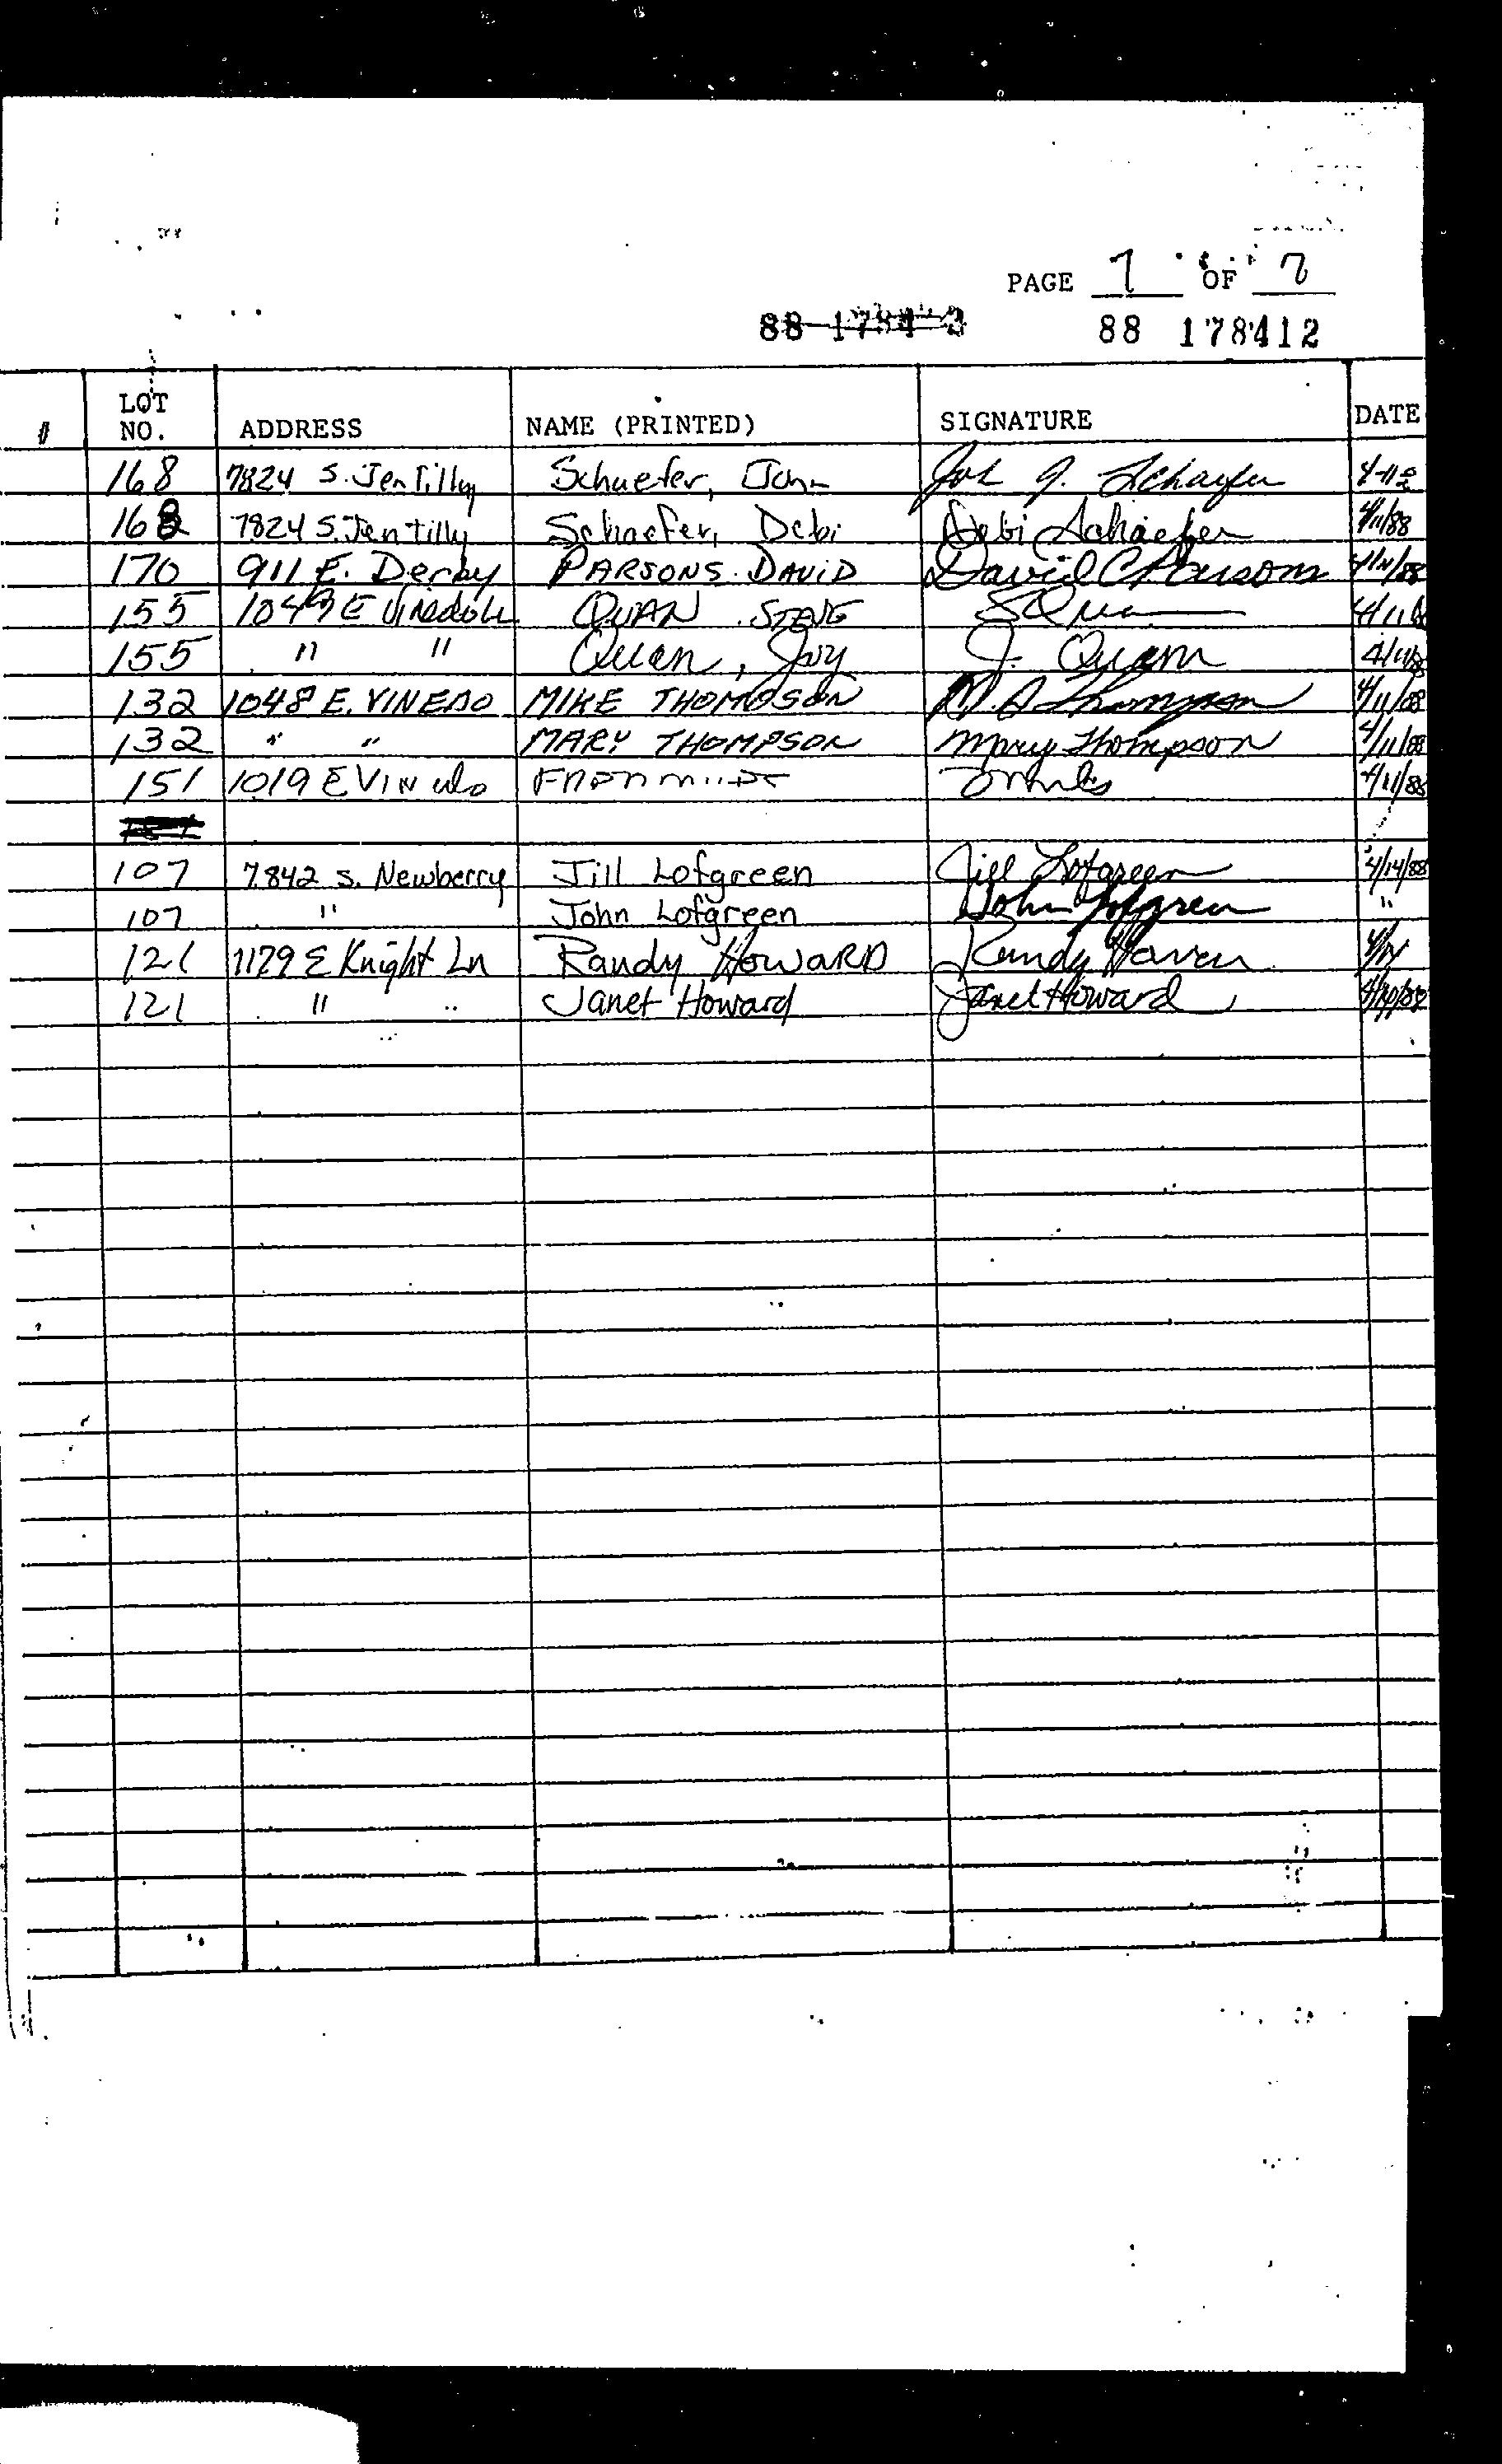 PAGE 7 OF 7
88 178412
# LOT NO. ADDRESS NAME (PRINTED) SIGNATURE DATE
168 7824 S. Jentilly Schaefer, John John J. Schaefer 4-11
168 7824 S. Jentilly Schaefer, Debi Debi Schaefer 4/11/88
170 911 E. Derby PARSONS DAVID David C Parsons 4/11/88
155 1049 E QUAN STEVE S Quan 4/11/8
155 " " Quan, Joy J. Quan 4/11/8
132 1048 E. VINEDO MIKE THOMPSON M. A Thompson 4/11/88
132 " " MARY THOMPSON Mary Thompson 4/11/88
151 1019 E VINEDO 4/11/88
107 7842 S. Newberry Jill Lofgreen Jill Lofgreen 4/14/88
107 " John Lofgreen John Lofgreen "
121 1179 E Knight Ln Randy HOWARD Randy Howard
121 " " Janet Howard Janet Howard 4/14/88